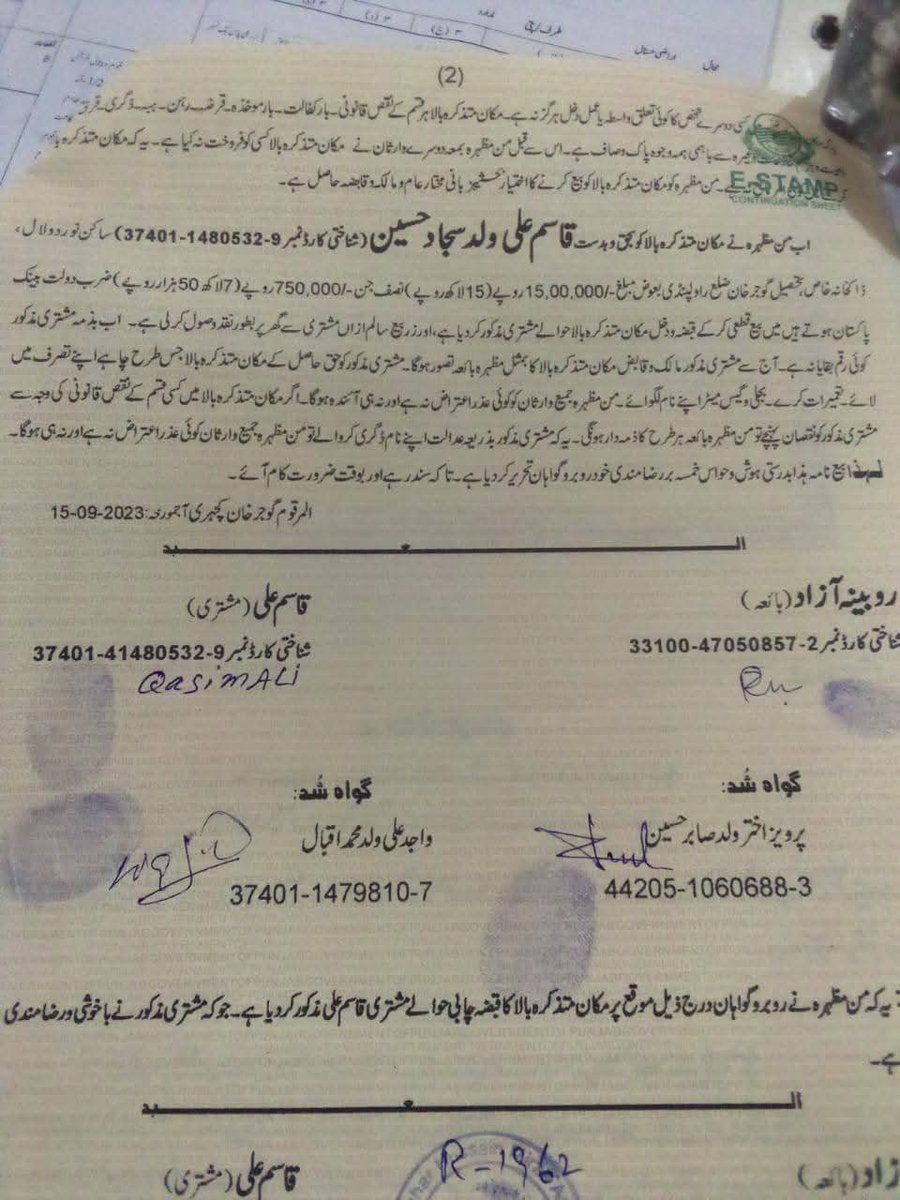 (2)
کسی دوسرے شخص کا کوئی تعلق واسطہ یا عمل دخل ہرگز نہ ہے۔ مکان متذکرہ بالا ہر قسم کے نقص قانونی۔ بار کفالت۔ بار موخذہ۔ قرضہ۔ رہن۔ ہبہ۔ ڈگری۔
سے باہمی ہمہ وجوہ پاک وصاف ہے۔ اس سے قبل من مظہرہ بمعہ دوسرے وارثان نے مکان متذکرہ بالا کسی کو فروخت نہ کیا ہے۔ یہ کہ مکان متذکرہ
من مظہرہ کو مکان متذکرہ بالا کو بیع کرنے کا اختیار بحیثیت بانی مختار عام و مالک و قابضہ حاصل ہے۔
E-STAMP
CONTINUATION SHEET
اب من مظہرہ نے مکان متذکرہ بالا کو بحق و بدست قاسم علی ولد سجاد حسین (شناختی کارڈ نمبر 9-1480532-37401) ساکن نور دولال،
ڈاکخانہ خاص، تحصیل گوجر خان ضلع راولپنڈی بعوض مبلغ -/15,00,000 روپے (15 لاکھ روپے) نصف جن -/750,000 روپے (7 لاکھ 50 ہزار روپے) ضرب دولت بینک
پاکستان ہوتے ہیں میں بیع قطعی کر کے قبضہ و دخل مکان متذکرہ بالا حوالے مشتری مذکور کر دیا ہے، اور زر بیع سالم ازاں مشتری سے گھر پر بطور نقد وصول کر لی ہے۔ اب بذمہ مشتری مذکور
کوئی رقم بقایا نہ ہے۔ آج سے مشتری مذکور مالک و قابض مکان متذکرہ بالا کا بمثل مظہرہ بائعہ تصور ہوگا۔ مشتری مذکور کو حق حاصل کے مکان متذکرہ بالا جس طرح چاہے اپنے تصرف میں
لائے۔ تعمیرات کرے۔ بجلی و گیس میٹر اپنے نام لگوائے۔ من مظہرہ جمیع وارثان کو کوئی عذر اعتراض نہ ہے اور نہ ہی آئندہ ہوگا۔ اگر مکان متذکرہ بالا میں کسی قسم کے نقص قانونی کی وجہ سے
مشتری مذکور کو نقصان پہنچے تو من مظہرہ بائعہ ہر طرح کا ذمہ دار ہونگی۔ یہ کہ مشتری مذکور بذریعہ عدالت اپنے نام ڈگری کروالے تو من مظہرہ جمیع وارثان کوئی عذر اعتراض نہ ہے اور نہ ہی ہوگا۔
لہٰذا بیع نامہ ہذا بدرستی ہوش و حواس خمسہ برضامندی خود روبرو گواہان تحریر کر دیا ہے۔ تاکہ سند رہے اور بوقت ضرورت کام آئے۔
المرقوم گوجر خان کچہری آجمورخہ: 15-09-2023
العبد
روبینہ آزاد (بائعہ)
شناختی کارڈ نمبر 2-47050857-33100
قاسم علی (مشتری)
شناختی کارڈ نمبر 9-41480532-37401
QasimALi
گواہ شد:
پرویز اختر ولد صابر حسین
44205-1060688-3
گواہ شد:
واجد علی ولد محمد اقبال
37401-1479810-7
یہ کہ من مظہرہ نے روبرو گواہان درج ذیل موقع پر مکان متذکرہ بالا کا قبضہ چابی حوالے مشتری قاسم علی مذکور کر دیا ہے۔ جو کہ مشتری مذکور نے باخوشی و رضامندی
ہے۔
العبد
R-1962
زاد (بائعہ)
قاسم علی (مشتری)